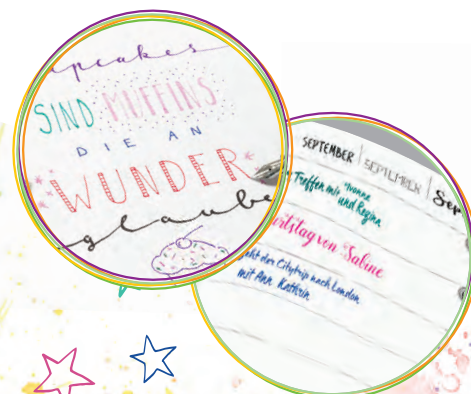 upcakes
SIND MUFFINS
DIE AN
WUNDER
glaube
SEPTEMBER SEPTEMBER Sep
Treffen mit Yvonne
und Regina
urtstag von Sabine
geht der Citytrip nach London
mit Ann Kathrin